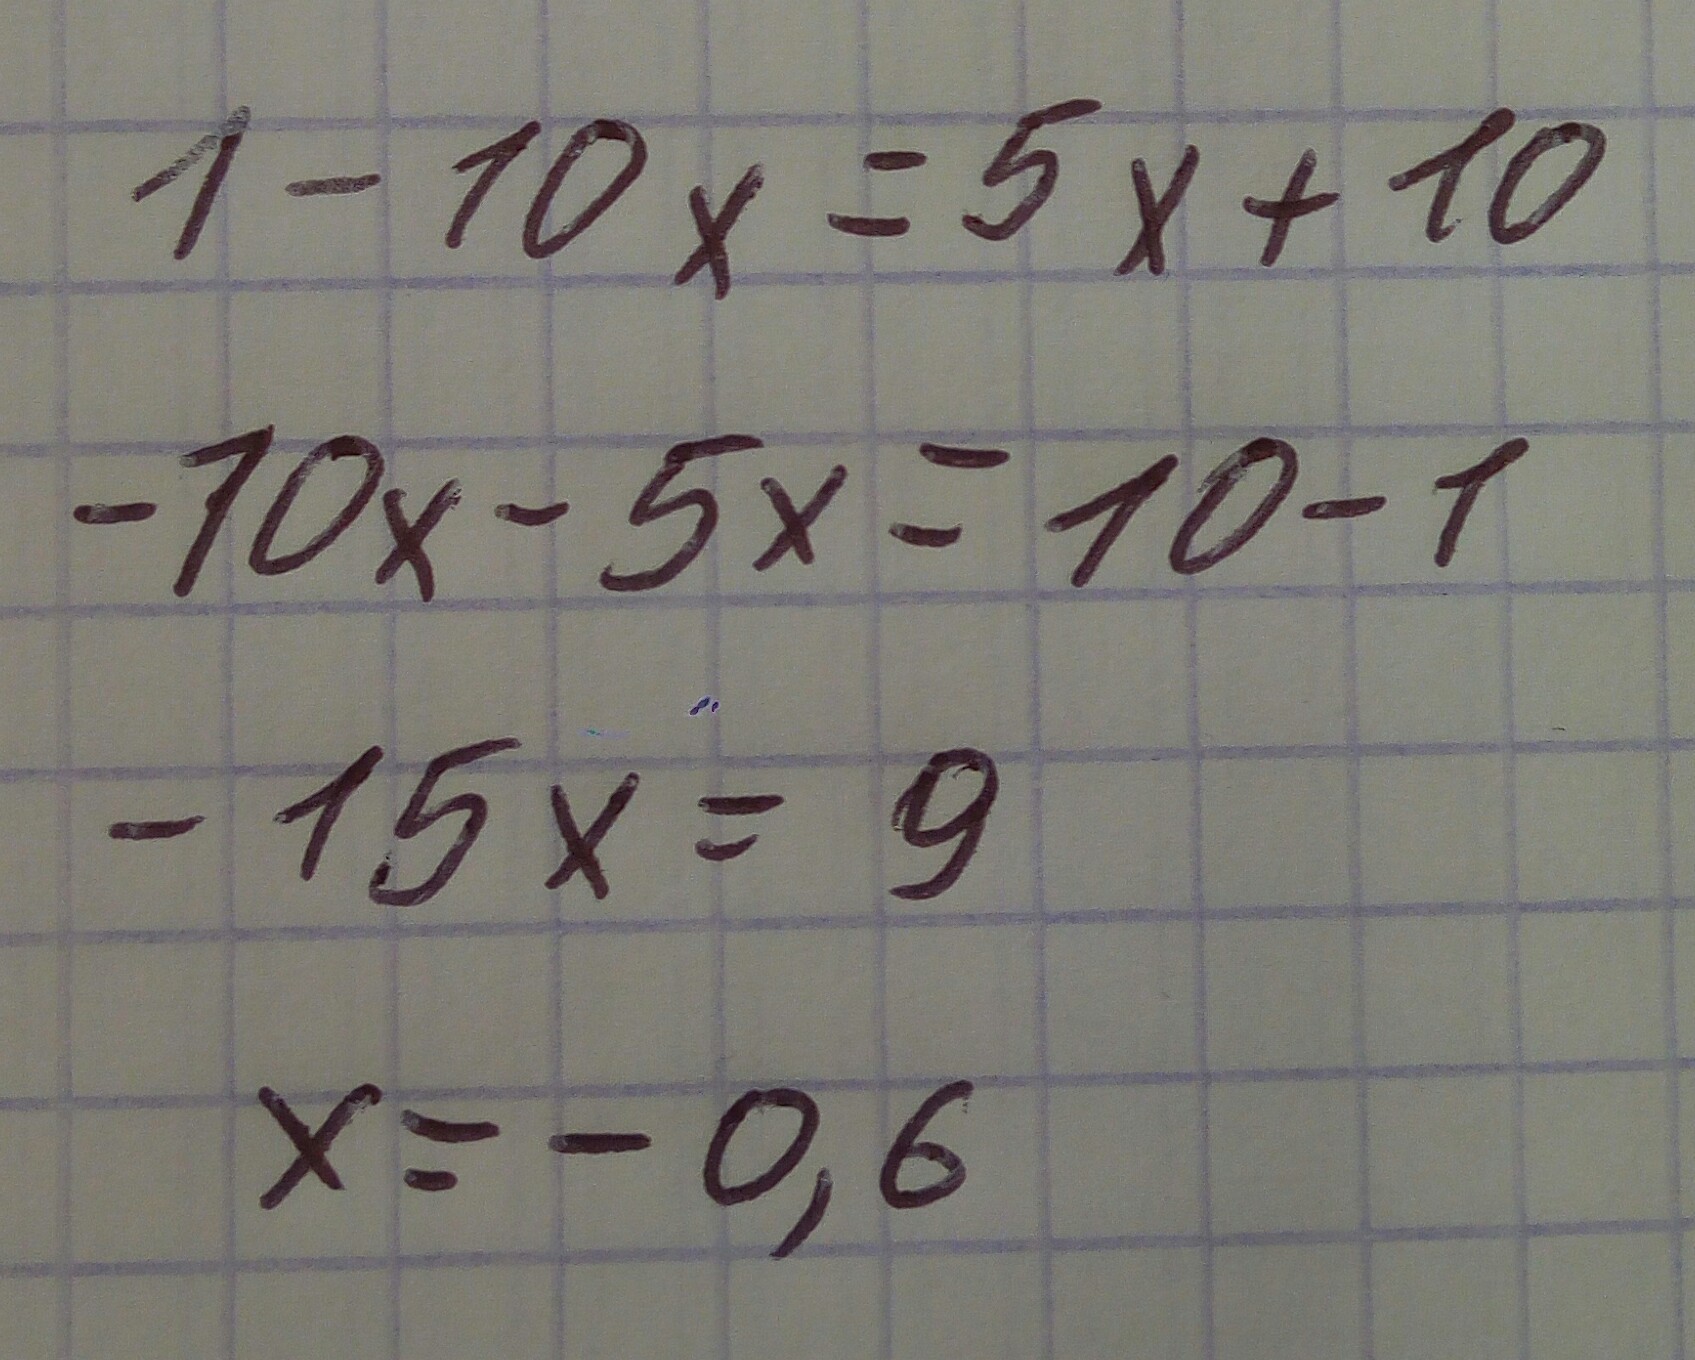 1 - 10x = 5x + 10
-10x - 5x = 10 - 1
- 15x = 9
x = - 0,6